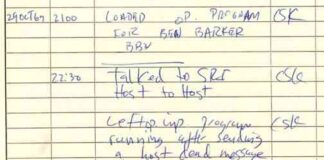 29OCT69 2100 LOADED OP. PROGRAM CSK
FOR BEN BARKER
BBN
22:30 Talked to SRI CSK
Host to Host
Left op. imp program CSK
running after sending
a host dead message